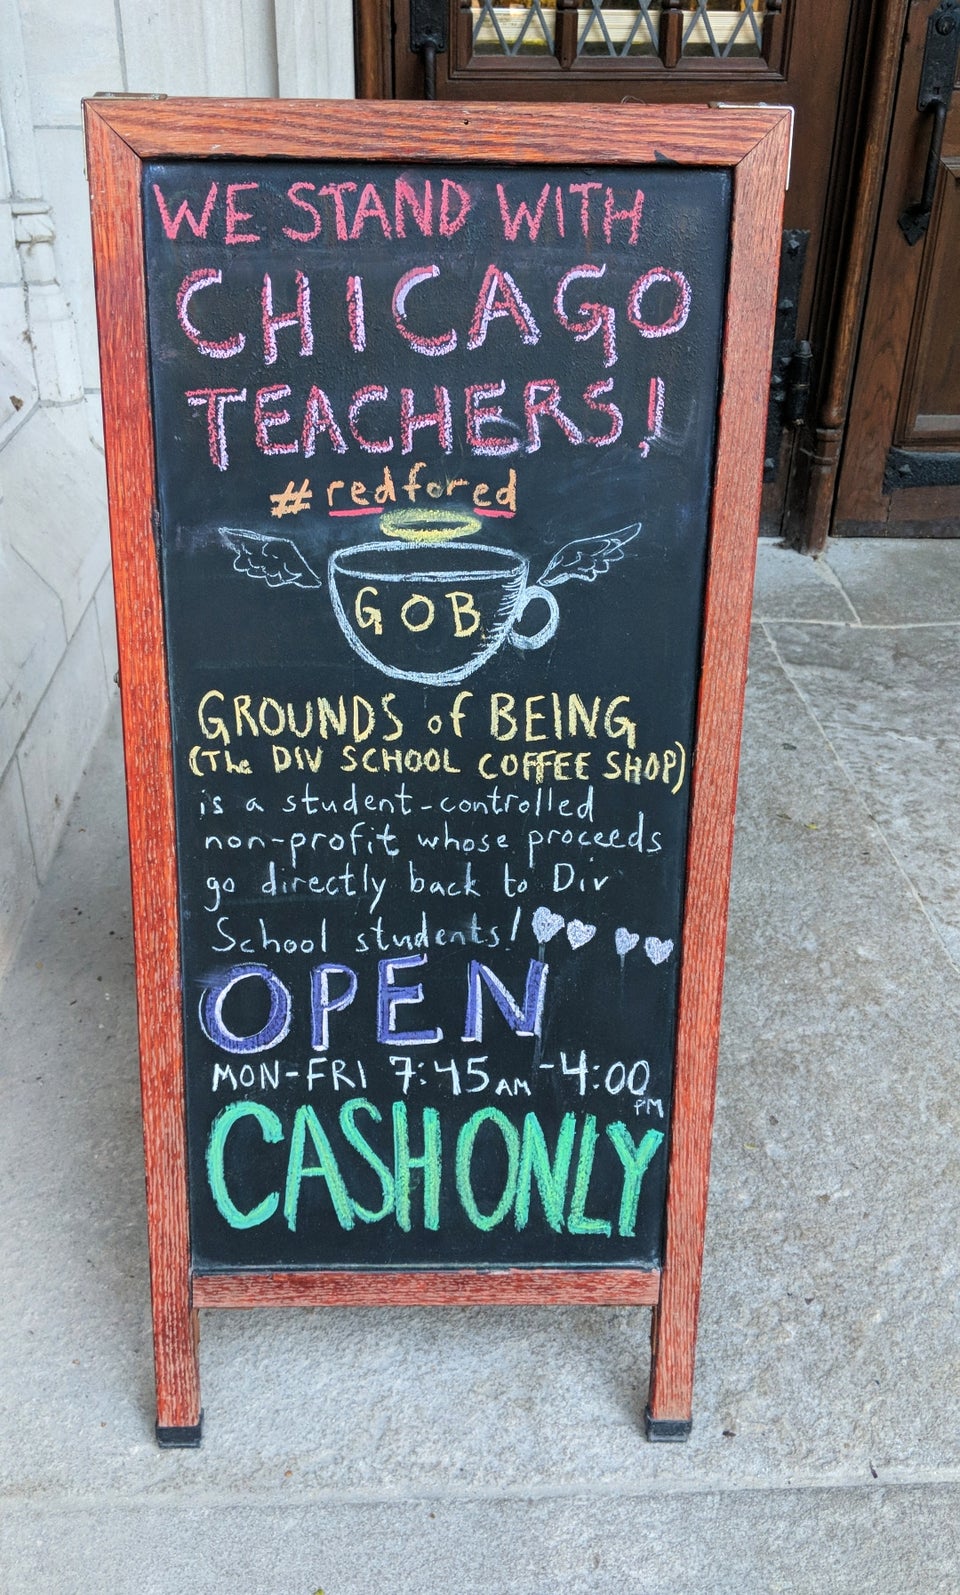 WE STAND WITH
CHICAGO
TEACHERS!
#redfored
GOB
GROUNDS of BEING
(The DIV SCHOOL COFFEE SHOP)
is a student-controlled
non-profit whose proceeds
go directly back to Div
School students!
OPEN
MON-FRI 7:45AM-4:00PM
CASH ONLY